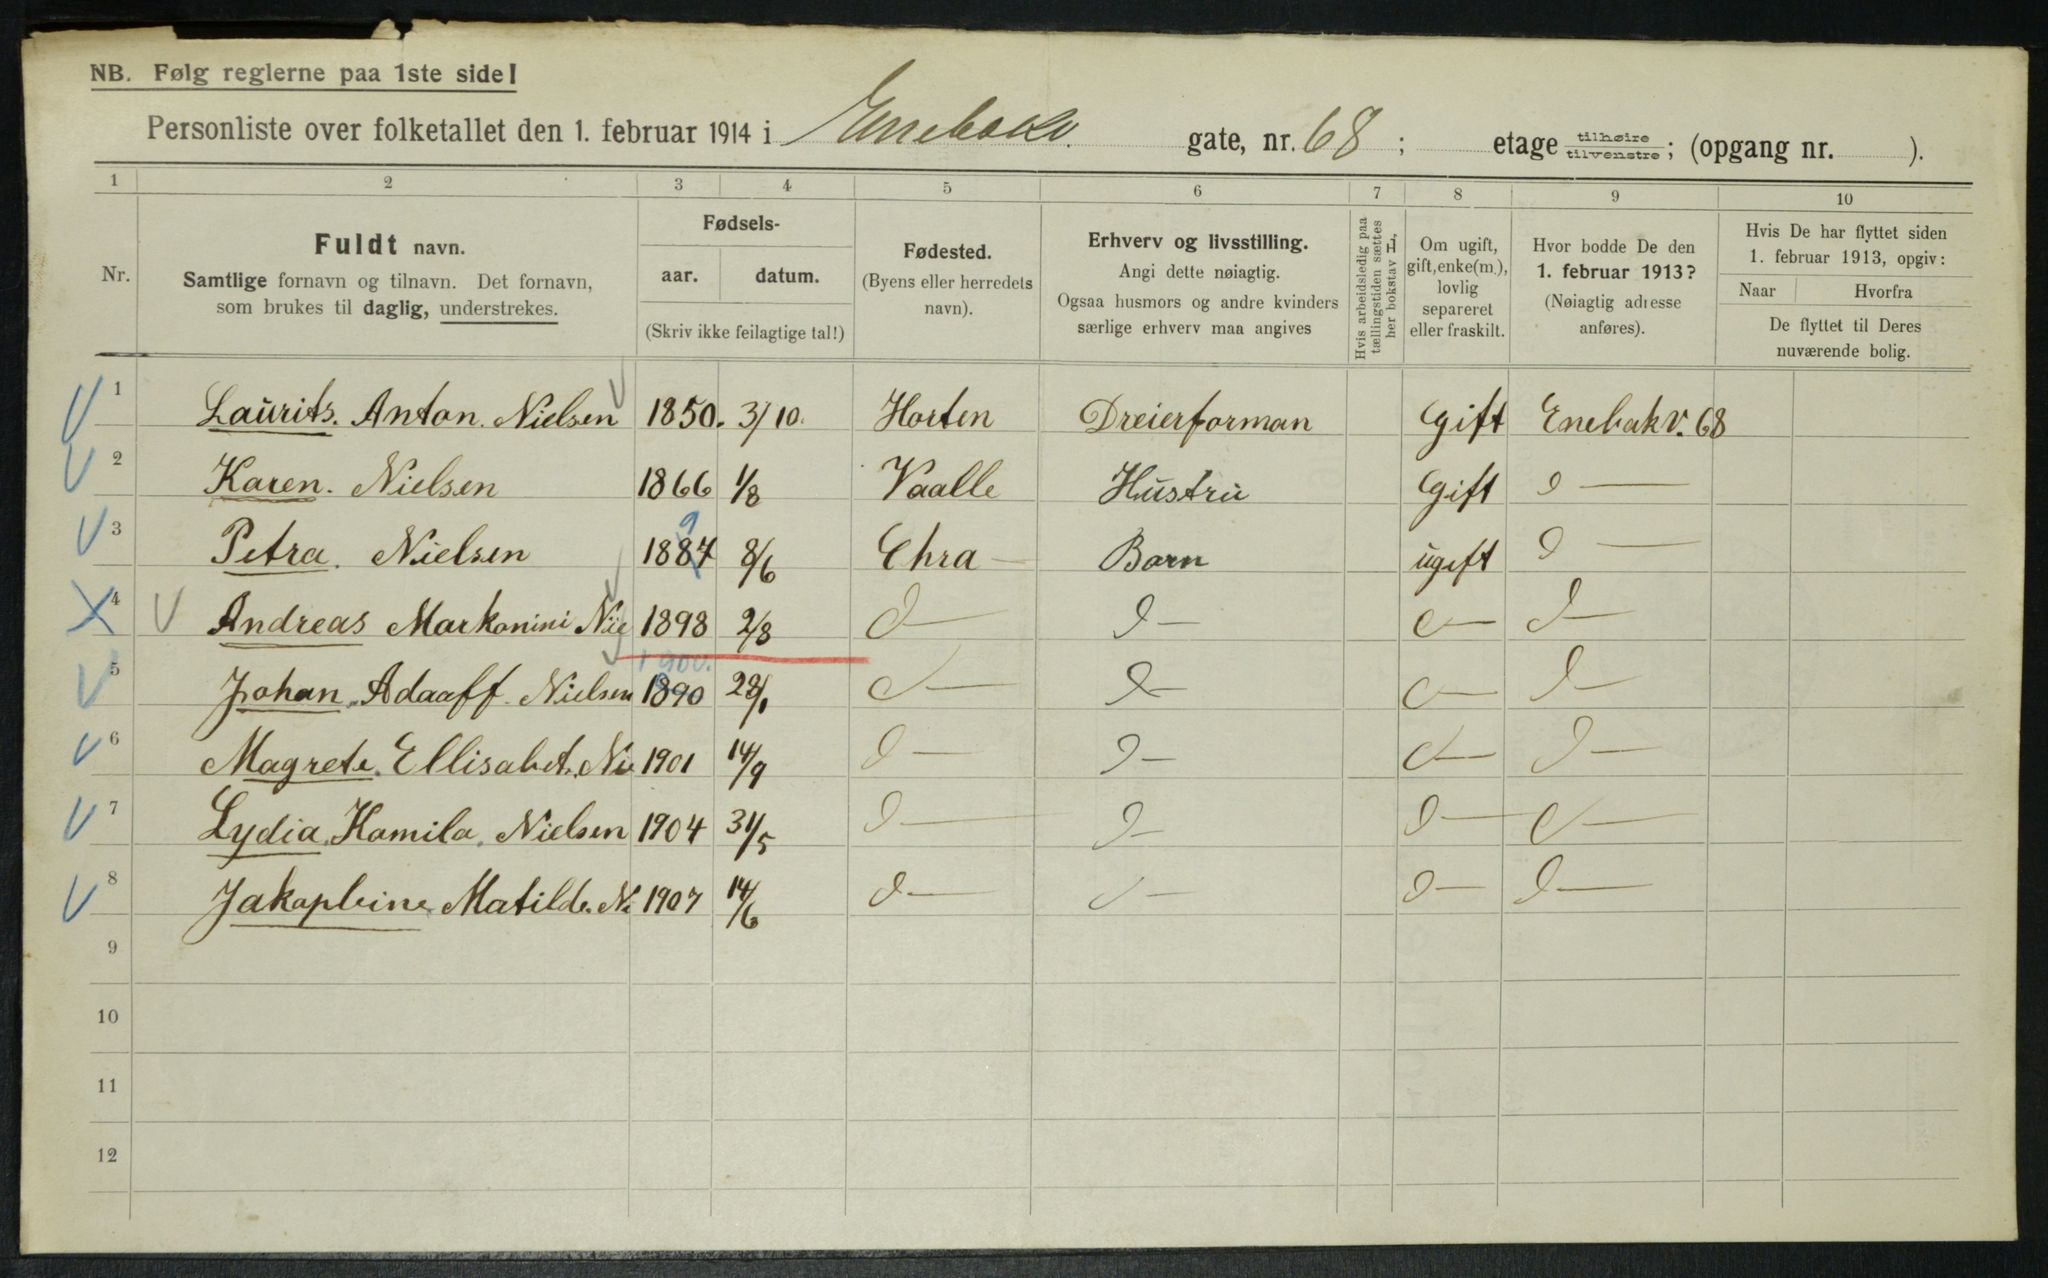 NB. Følg reglerne paa 1ste side!
Personliste over folketallet den 1. februar 1914 i Ennebakv. gate, nr. 68; etage tilhøire tilvenstre; (opgang nr. ).
1 2 3 4 5 6 7 8 9 10
Nr.
Fuldt navn.
Samtlige fornavn og tilnavn. Det fornavn,
som brukes til daglig, understrekes.
Fødsels-
aar. datum.
(Skriv ikke feilagtige tal!)
Fødested.
(Byens eller herredets
navn).
Erhverv og livsstilling.
Angi dette nøiagtig.
Ogsaa husmors og andre kvinders
særlige erhverv maa angives
Hvis arbeidsledig paa
tællingstiden sættes
her bokstav L,
Om ugift,
gift, enke(m.),
lovlig
separeret
eller fraskilt.
Hvor bodde De den
1. februar 1913?
(Nøiagtig adresse
anføres).
Hvis De har flyttet siden
1. februar 1913, opgiv:
Naar Hvorfra
De flyttet til Deres
nuværende bolig.
1 Laurits. Anton. Nielsen 1850. 3/10. Horten Dreierforman Gift Enebakv. 68
2 Karen. Nielsen 1866 1/8 Vaalle Hustru Gift d —
3 Petra. Nielsen 1884 9 8/6 Chra — Barn ugift d —
4 Andreas Markonini Nie 1898 2/8 d — d — d — d —
5 Johan. Adaaff. Nielsen 1890 1900. 28/1 d — d — d — d —
6 Magrete. Ellisabet. Nie 1901 14/9 d — d — d — d —
7 Lydia. Kamila. Nielsen 1904 31/5 d — d — d — d —
8 Jakapleine Matilde. Ni 1907 14/6 d — d — d — d —
9
10
11
12